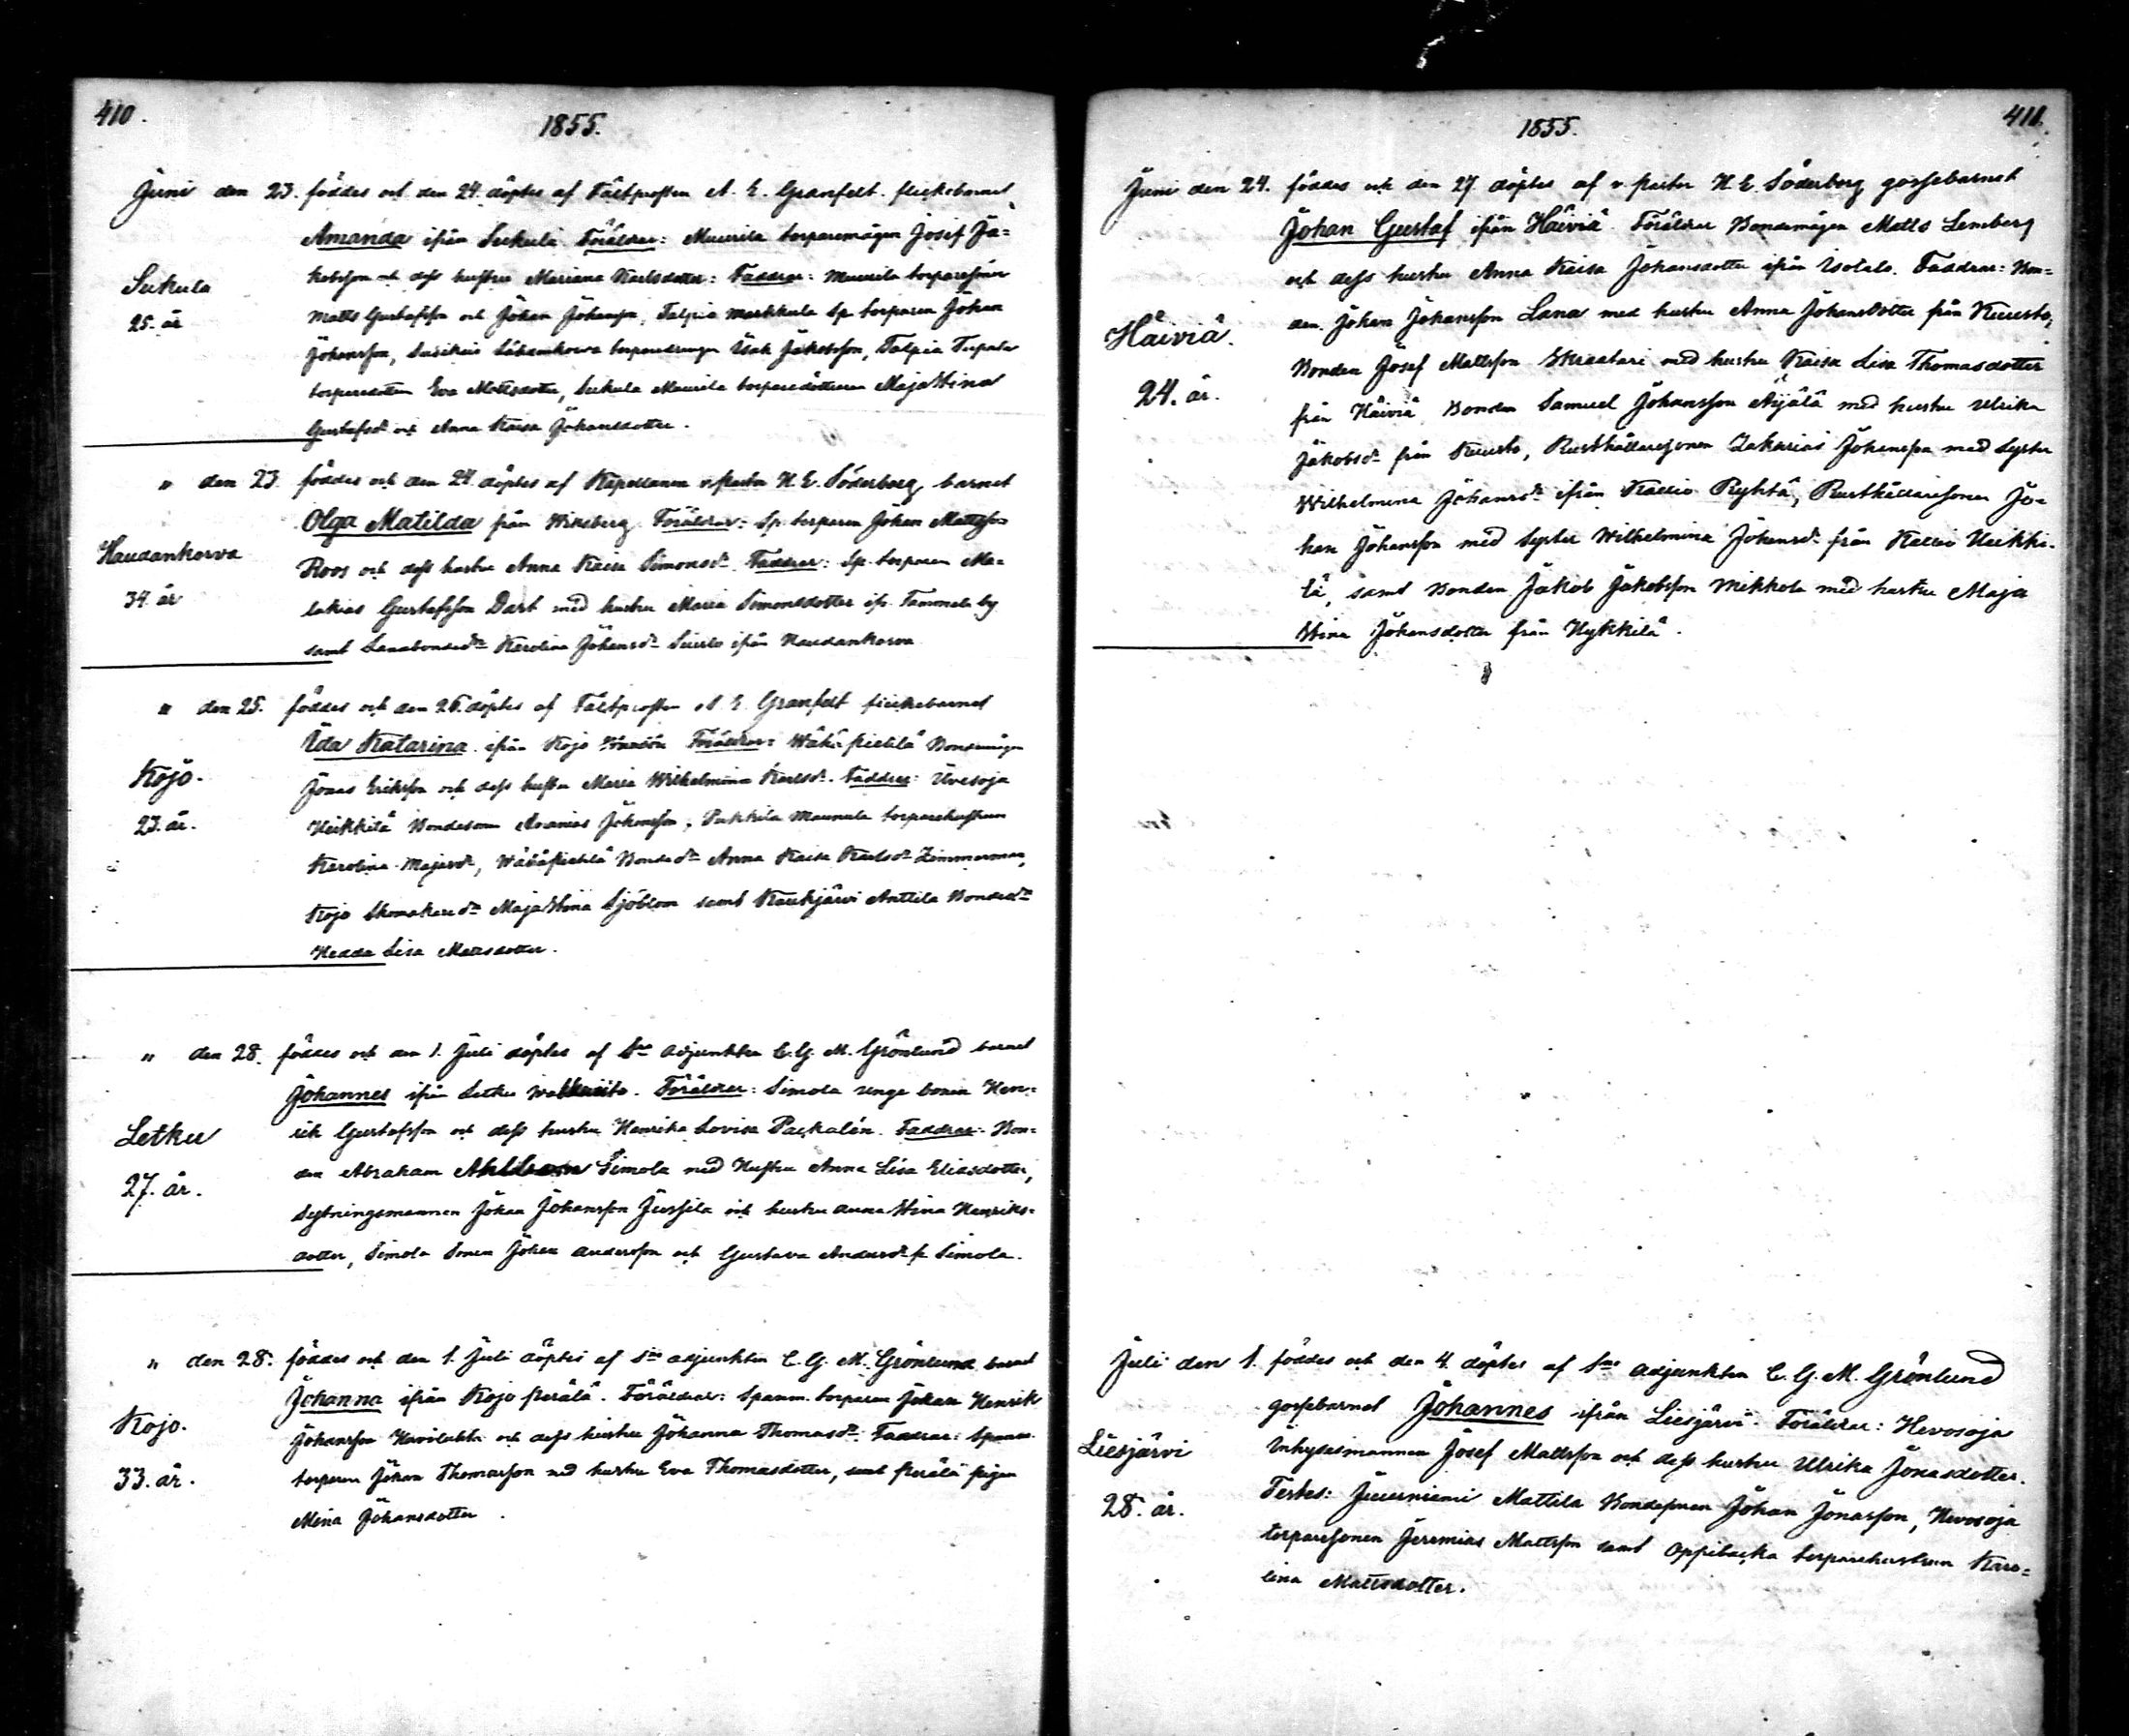 410.
1855.
Juni den 23. föddes och den 24. döptes af Fältprosten A. E. Granfelt flickebarnet
Amanda ifrån Sukula. Föräldrar: Muurila torparemågen Josif Ja=
kobsson och dess hustru Mariana Karlsdotter: Faddrar: Muurila torparesöner
Sukula
25. år
Matts Gustafsson och Johan Johansson, Talpia Markkula Sp. torparen Johan
Johansson, torparedrengen Isak Jakobsson, Talpia
torparedottern Eva Mattsdotter, Sukula Muurila torparedöttrarna Maja Stina
Gustafsdr och Anna Kaisa Johansdotter.
" den 23. föddes och den 24. döptes af Kapellanen v. Pastor H. E. Söderborg barnet
Olga Matilda från Wiksberg. Föräldrar: Sp. torparen Johan Mattsson
Haudankorva
34. år
Roos och dess hustru Anna Kaisa Simonsdr. Faddrar: Sp. torparen Ma=
lakias Gustafsson Dart med hustru Maria Simonsdotter ifr. Tammela by
samt Lanabondedr Karolina Johansdr ifrån Haudankorva.
" den 25. föddes och den 26. döptes af Fältprosten A. E. Granfelt flickebarnet
Ida Katarina ifrån Kojo. Föräldrar: Wähä Pietilä Bondemågen
Kojo.
23. år.
Jonas Eriksson och dess hustru Maria Wilhelmina Karlsdr. Faddrar: Uvesoja
Heikkilä Bondesonen Ananias Johansson, Maunula torparehustrun
Karolina, Wähäpietilä Bondedr Anna Kaisa Karlsdr Zimmerman,
Kojo Skomakaredr Maja Stina Sjöblom samt Kaukjärvi Anttila Bondedr
Hedda Lisa Mattsdotter.
" den 28. föddes och den 1. Juli döptes af Sne adjunkten C. G. M. Grönlund barnet
Johannes ifrån Letku. Föräldrar: Simola unge bonden Hen=
Letku
27. år.
rik Gustafsson och dess hustru Henrika Lovisa Packalén. Faddrar: Bon=
den Abraham Simola med Hustru Anna Lisa Eliasdotter,
Sytningsmannen Johan Johansson Jussila och hustru Anna Stina Henriks=
dotter, Simola Sonen Johan Andersson och Gustava Andersdr fr. Simola.
" den 28. föddes och den 1. Juli döptes af Sne adjunkten C. G. M. Grönlund barnet
Johanna ifrån Kojo Perälä. Föräldrar: Spanm. torparen Johan Henrik
Kojo.
33. år.
Johansson Havilahti och dess hustru Johanna Thomasdr. Faddrar: Spanm.
torparen Johan Thomasson med hustru Eva Thomasdotter, samt Perälä pigan
Mina Johansdotter.
411.
1855.
Juni den 24. föddes och den 27. döptes af v. Pastor H. E. Söderborg gossebarnet
Johan Gustaf ifrån Häiviä. Föräldrar Bondemågen Matts Lemberg
och dess hustru Anna Kaisa Johansdotter ifrån Isotalo. Faddrar: Bon=
Häiviä.
24. år.
den Johan Johansson Lana med hustru Anna Johansdotter från Kuusto,
Bonden Josef Mattsson Skraatari med hustru Kaisa Lisa Thomasdotter
från Häiviä, Bonden Samuel Johansson Äijälä med hustru Ulrika
Jakobsdr från Kuusto, Rusthållaresonen Zakarias Johansson med Syster
Wilhelmina Johansdr ifrån Kallio Ryhtä, Rusthållaresonen Jo=
han Johansson med syster Wilhelmina Johansdr från Kallio Heikki=
lä, samt Bonden Jakob Jakobsson Mikkola med hustru Maja
Stina Johansdotter från Hykkilä.
Juli den 1. föddes och den 4. döptes af Sne adjunkten C. G. M. Grönlund
gossebarnet Johannes ifrån Liesjärvi. Föräldrar: Hevosoja
Liesjärvi
28. år.
Inhysesmannen Josef Mattsson och dess hustru Ulrika Jonasdotter.
Testes: Juurniemi Mattila Bondesonen Johan Jonasson, Hevosoja
torparesonen Jeremias Mattsson samt Oppibacka torparehustrun Karo=
lina Mattsdotter.